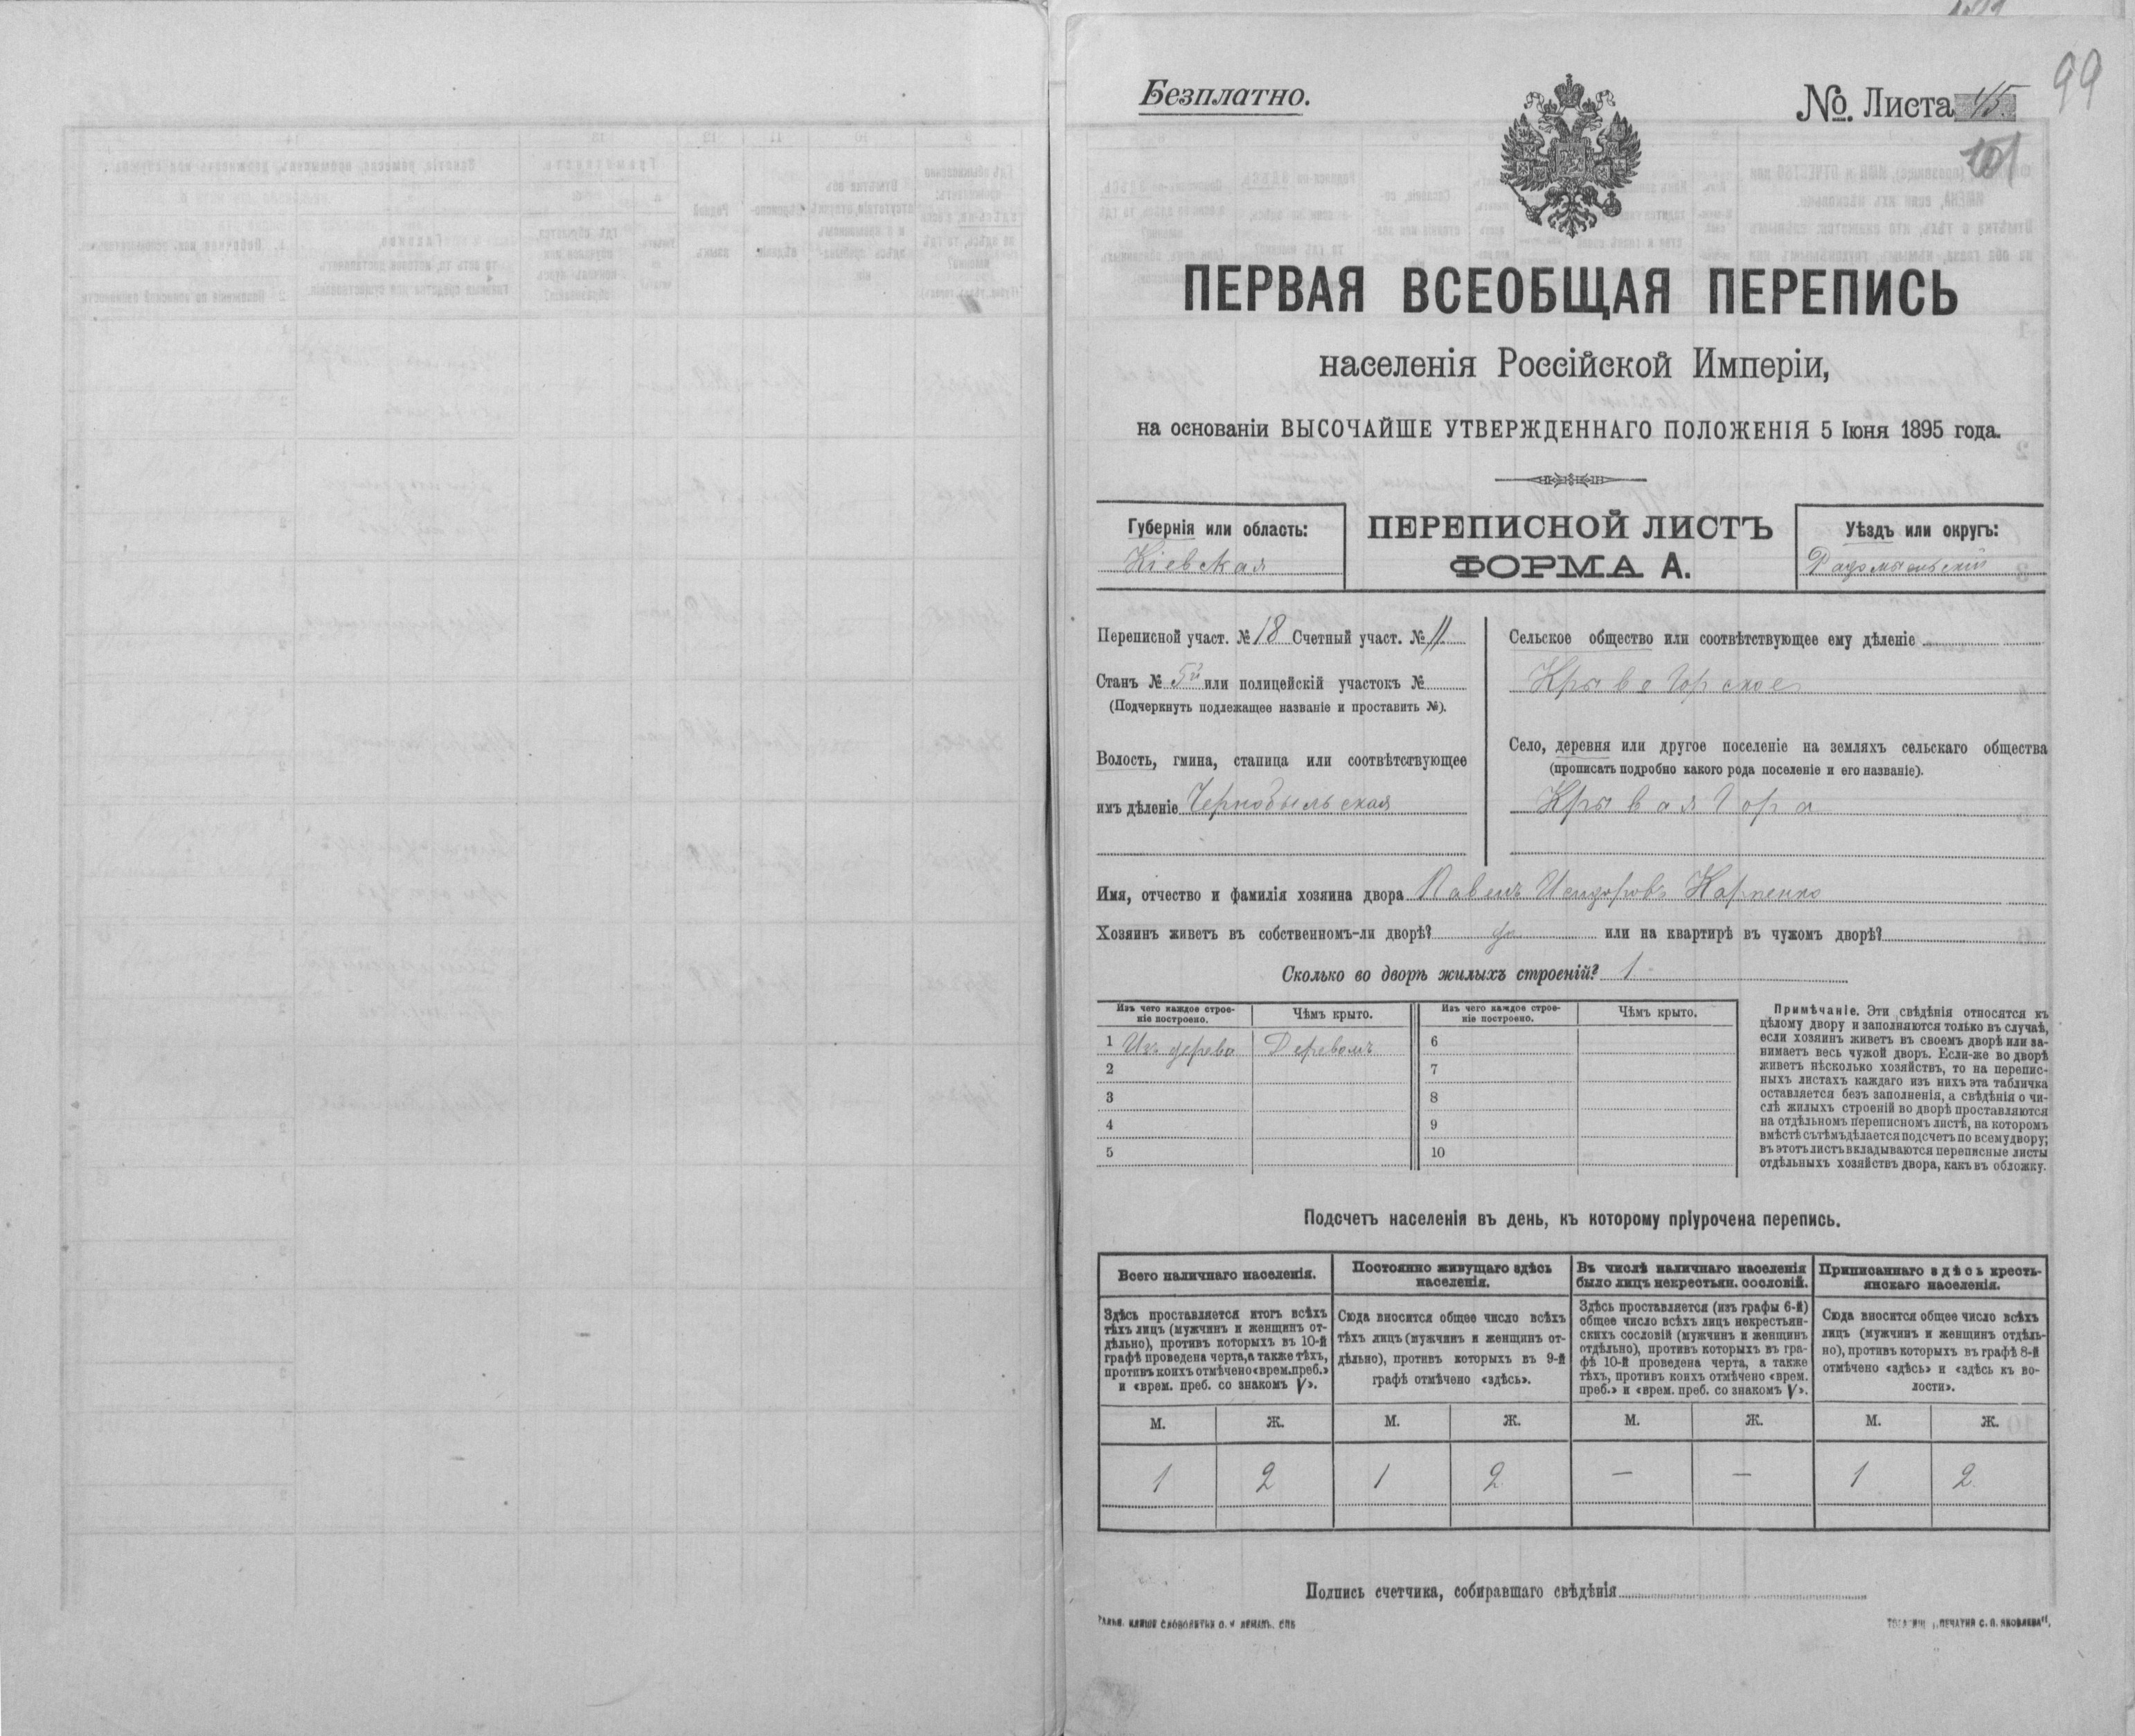 99
Безплатно.
№. Листа 45.
101
ПЕРВАЯ ВСЕОБЩАЯ ПЕРЕПИСЬ
населенія Россійской Имперіи,
на основаніи ВЫСОЧАЙШЕ УТВЕРЖДЕННАГО ПОЛОЖЕНІЯ 5 Іюня 1895 года.
Губернія или область:
Кіевская
ПЕРЕПИСНОЙ ЛИСТЪ
ФОРМА А.
Уѣздъ или округъ:
Радомысльскій
Переписной участ. № 18 Счетный участ. № 11
Станъ № 5й или полицейскій участокъ №
(Подчеркнуть подлежащее названіе и проставить №).
Волость, гмина, станица или соотвѣтствующее
имъ дѣленіе Чернобыльская
Сельское общество или соотвѣтствующее ему дѣленіе
Крывогорское
Село, деревня или другое поселеніе на земляхъ сельскаго общества
(прописать подробно какого рода поселеніе и его названіе).
Крывая Гора
Имя, отчество и фамилія хозяина двора Павелъ Исидоровъ Карпенко
Хозяинъ живетъ въ собственномъ-ли дворѣ? да или на квартирѣ въ чужомъ дворѣ?
Сколько во дворѣ жилыхъ строеній? 1
Изъ чего каждое строе-
ніе построено.
Чѣмъ крыто.
Изъ чего каждое строе-
ніе построено.
Чѣмъ крыто.
1 Изъ дерева Деревомъ 6
2 7
3 8
4 9
5 10
Примѣчаніе. Эти свѣдѣнія относятся къ
цѣлому двору и заполняются только въ случаѣ,
если хозяинъ живетъ въ своемъ дворѣ или за-
нимаетъ весь чужой дворъ. Если-же во дворѣ
живетъ нѣсколько хозяйствъ, то на перепис-
ныхъ листахъ каждаго изъ нихъ эта табличка
оставляется безъ заполненія, а свѣдѣнія о чи-
слѣ жилыхъ строеній во дворѣ проставляются
на отдѣльномъ переписномъ листѣ, на которомъ
вмѣстѣ съ тѣмъ дѣлается подсчетъ по всему двору;
въ этотъ листъ вкладываются переписные листы
отдѣльныхъ хозяйствъ двора, какъ въ обложку.
Подсчетъ населенія въ день, къ которому пріурочена перепись.
Всего наличнаго населенія.
Здѣсь проставляется итогъ всѣхъ
тѣхъ лицъ (мужчинъ и женщинъ от-
дѣльно), противъ которыхъ въ 10-й
графѣ проведена черта, а также тѣхъ,
противъ коихъ отмѣчено «врем. преб.»
и «врем. преб. со знакомъ V».
Постоянно живущаго здѣсь
населенія.
Сюда вносится общее число всѣхъ
тѣхъ лицъ (мужчинъ и женщинъ от-
дѣльно), противъ которыхъ въ 9-й
графѣ отмѣчено «здѣсь».
Въ числѣ наличнаго населенія
было лицъ некрестьян. сословій.
Здѣсь проставляется (изъ графы 6-й)
общее число всѣхъ лицъ некрестьян-
скихъ сословій (мужчинъ и женщинъ
отдѣльно), противъ которыхъ въ гра-
фѣ 10-й проведена черта, а также
тѣхъ, противъ коихъ отмѣчено «врем.
преб.» и «врем. преб. со знакомъ V».
Приписаннаго здѣсь кресть-
янскаго населенія.
Сюда вносится общее число всѣхъ
лицъ (мужчинъ и женщинъ отдѣль-
но), противъ которыхъ въ графѣ 8-й
отмѣчено «здѣсь» и «здѣсь къ во-
лости».
М. Ж. М. Ж. М. Ж. М. Ж.
1 2 1 2 — — 1 2
Подпись счетчика, собиравшаго свѣдѣнія